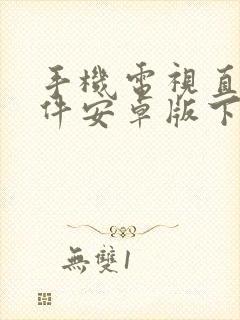 手機電視直
件安卓版下
無雙1